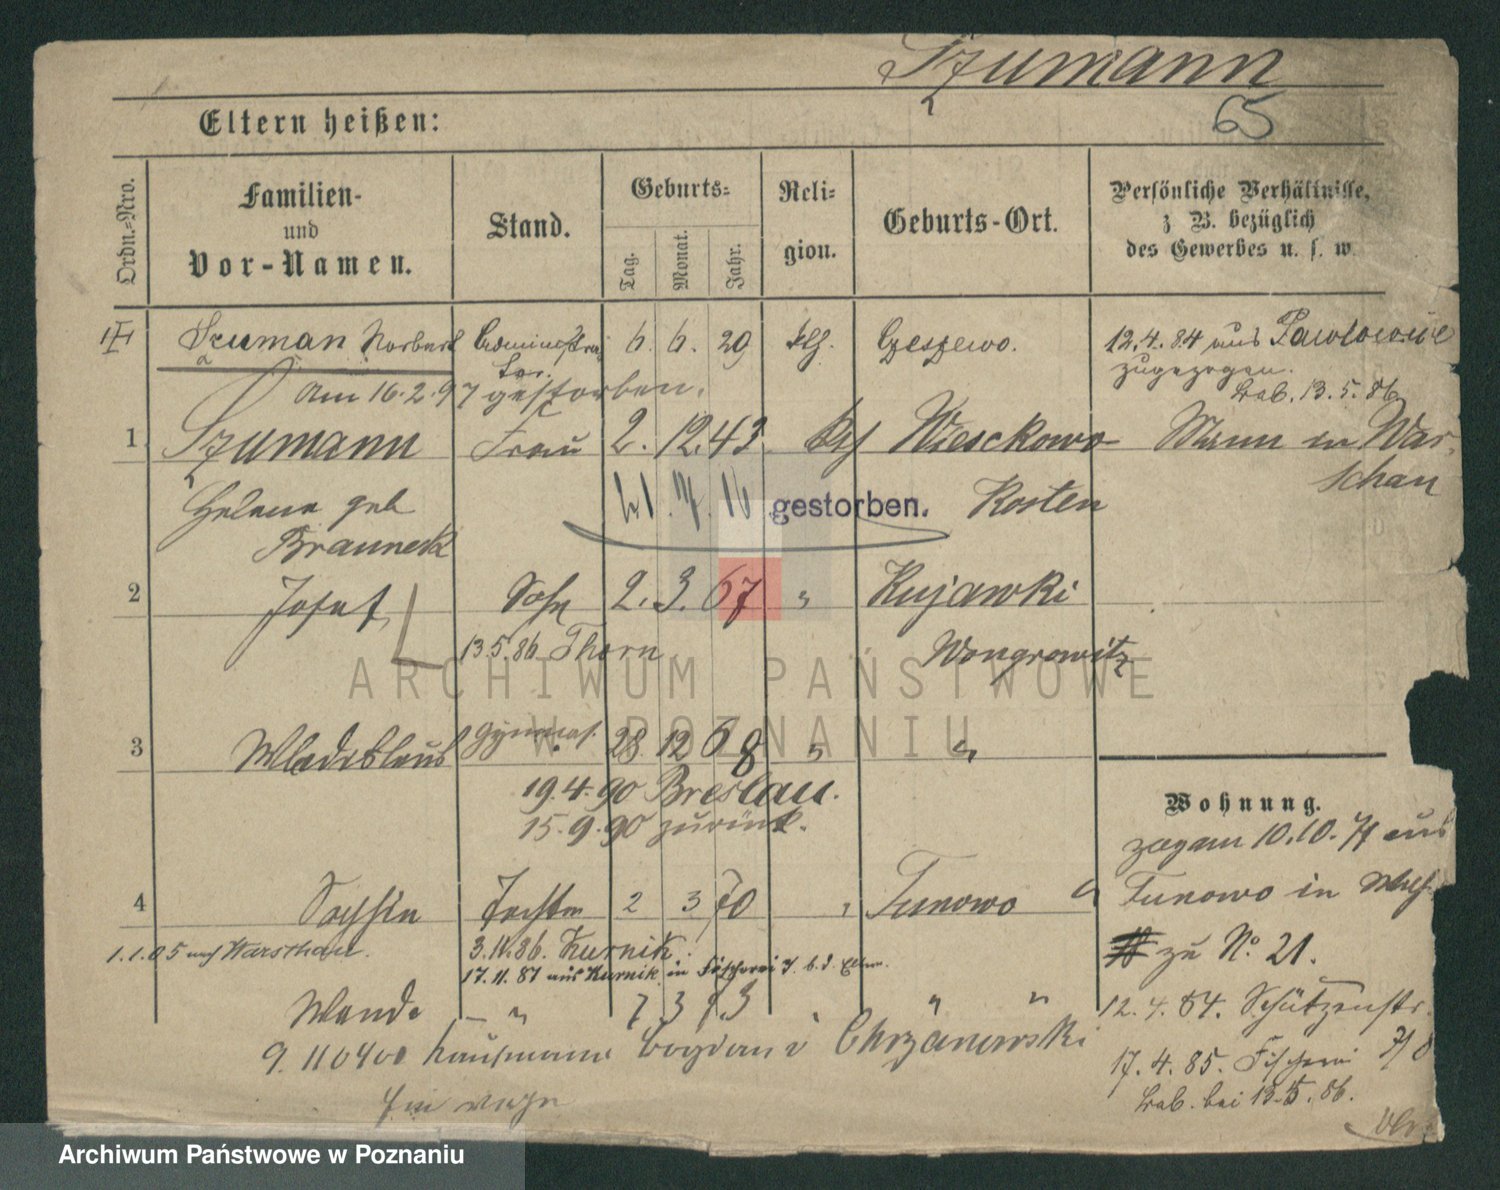 Szumann
65
Eltern heißen:
Ordn.-Nro.
Familien-
und
Vor-Namen.
Stand.
Geburts-
Tag.
Monat.
Jahr.
Reli-
gion.
Geburts-Ort.
Persönliche Verhältnisse,
z B. bezüglich
des Gewerbes u. s. w.
Szuman Norbert Administra 6. 6. 29 Czeszewo. 12.4.84 aus Pawlowice
tor. zugezogen.
Am 16.2.97 gestorben. 13.5.86
1. Szumann Frau 2. 12. 43 Wieschowo Mann in War-
schau
Helene geb 21. 7. 16 gestorben. Kosten
Brauneck
2 Josef Sohn 2. 3. 67 " Kujawki
13.5.86 Thorn Wongrowitz
ARCHIWUM PAŃSTWOWE
W POZNANIU
3 Wladislaus Gymnas. 28 12 68 " "
19.4.90 Breslau.
15.9.90 zurück.
Wohnung.
zog am 10.10.71 aus
4 Sophie Tochter 2 3 70 " Tunowo Tunowo in
1.1.05 nach Warschau. 3.11.86. Kurnik. zu No. 21.
17.11.87 aus Kurnik in Fischerei 7. b. d. Eltern.
Wanda — " 7 3 73 " " 12.4.84. Schützenstr.
9.110400 Kaufmann Bogdan v Chrzanowski
17.4.85. Fischerei 7/8
bei 13.5.86.
Archiwum Państwowe w Poznaniu